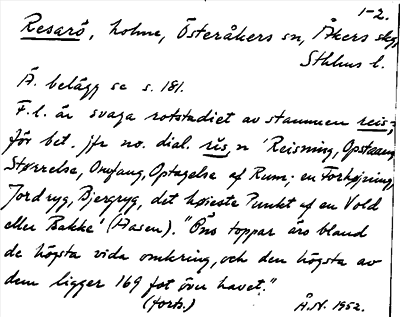 1-2.
Resarö, holme, Österåkers sn, Åkers skg,
Sthlms l.
Ä. belägg se s. 181.
F.l. är svaga rotstadiet av stammen reis-;
för bet. jfr no. dial. ris, n 'Reisning, Opstaaen,
Størrelse, Omfang, Optagelse af Rum; en Forhøining,
Jordryg, Bjergryg, det høieste Punkt af en Vold
eller Bakke' (Aasen). "Öns toppar äro bland
de högsta vida omkring, och den högsta av
dem ligger 169 fot över havet."
(forts.) Å.N. 1952.